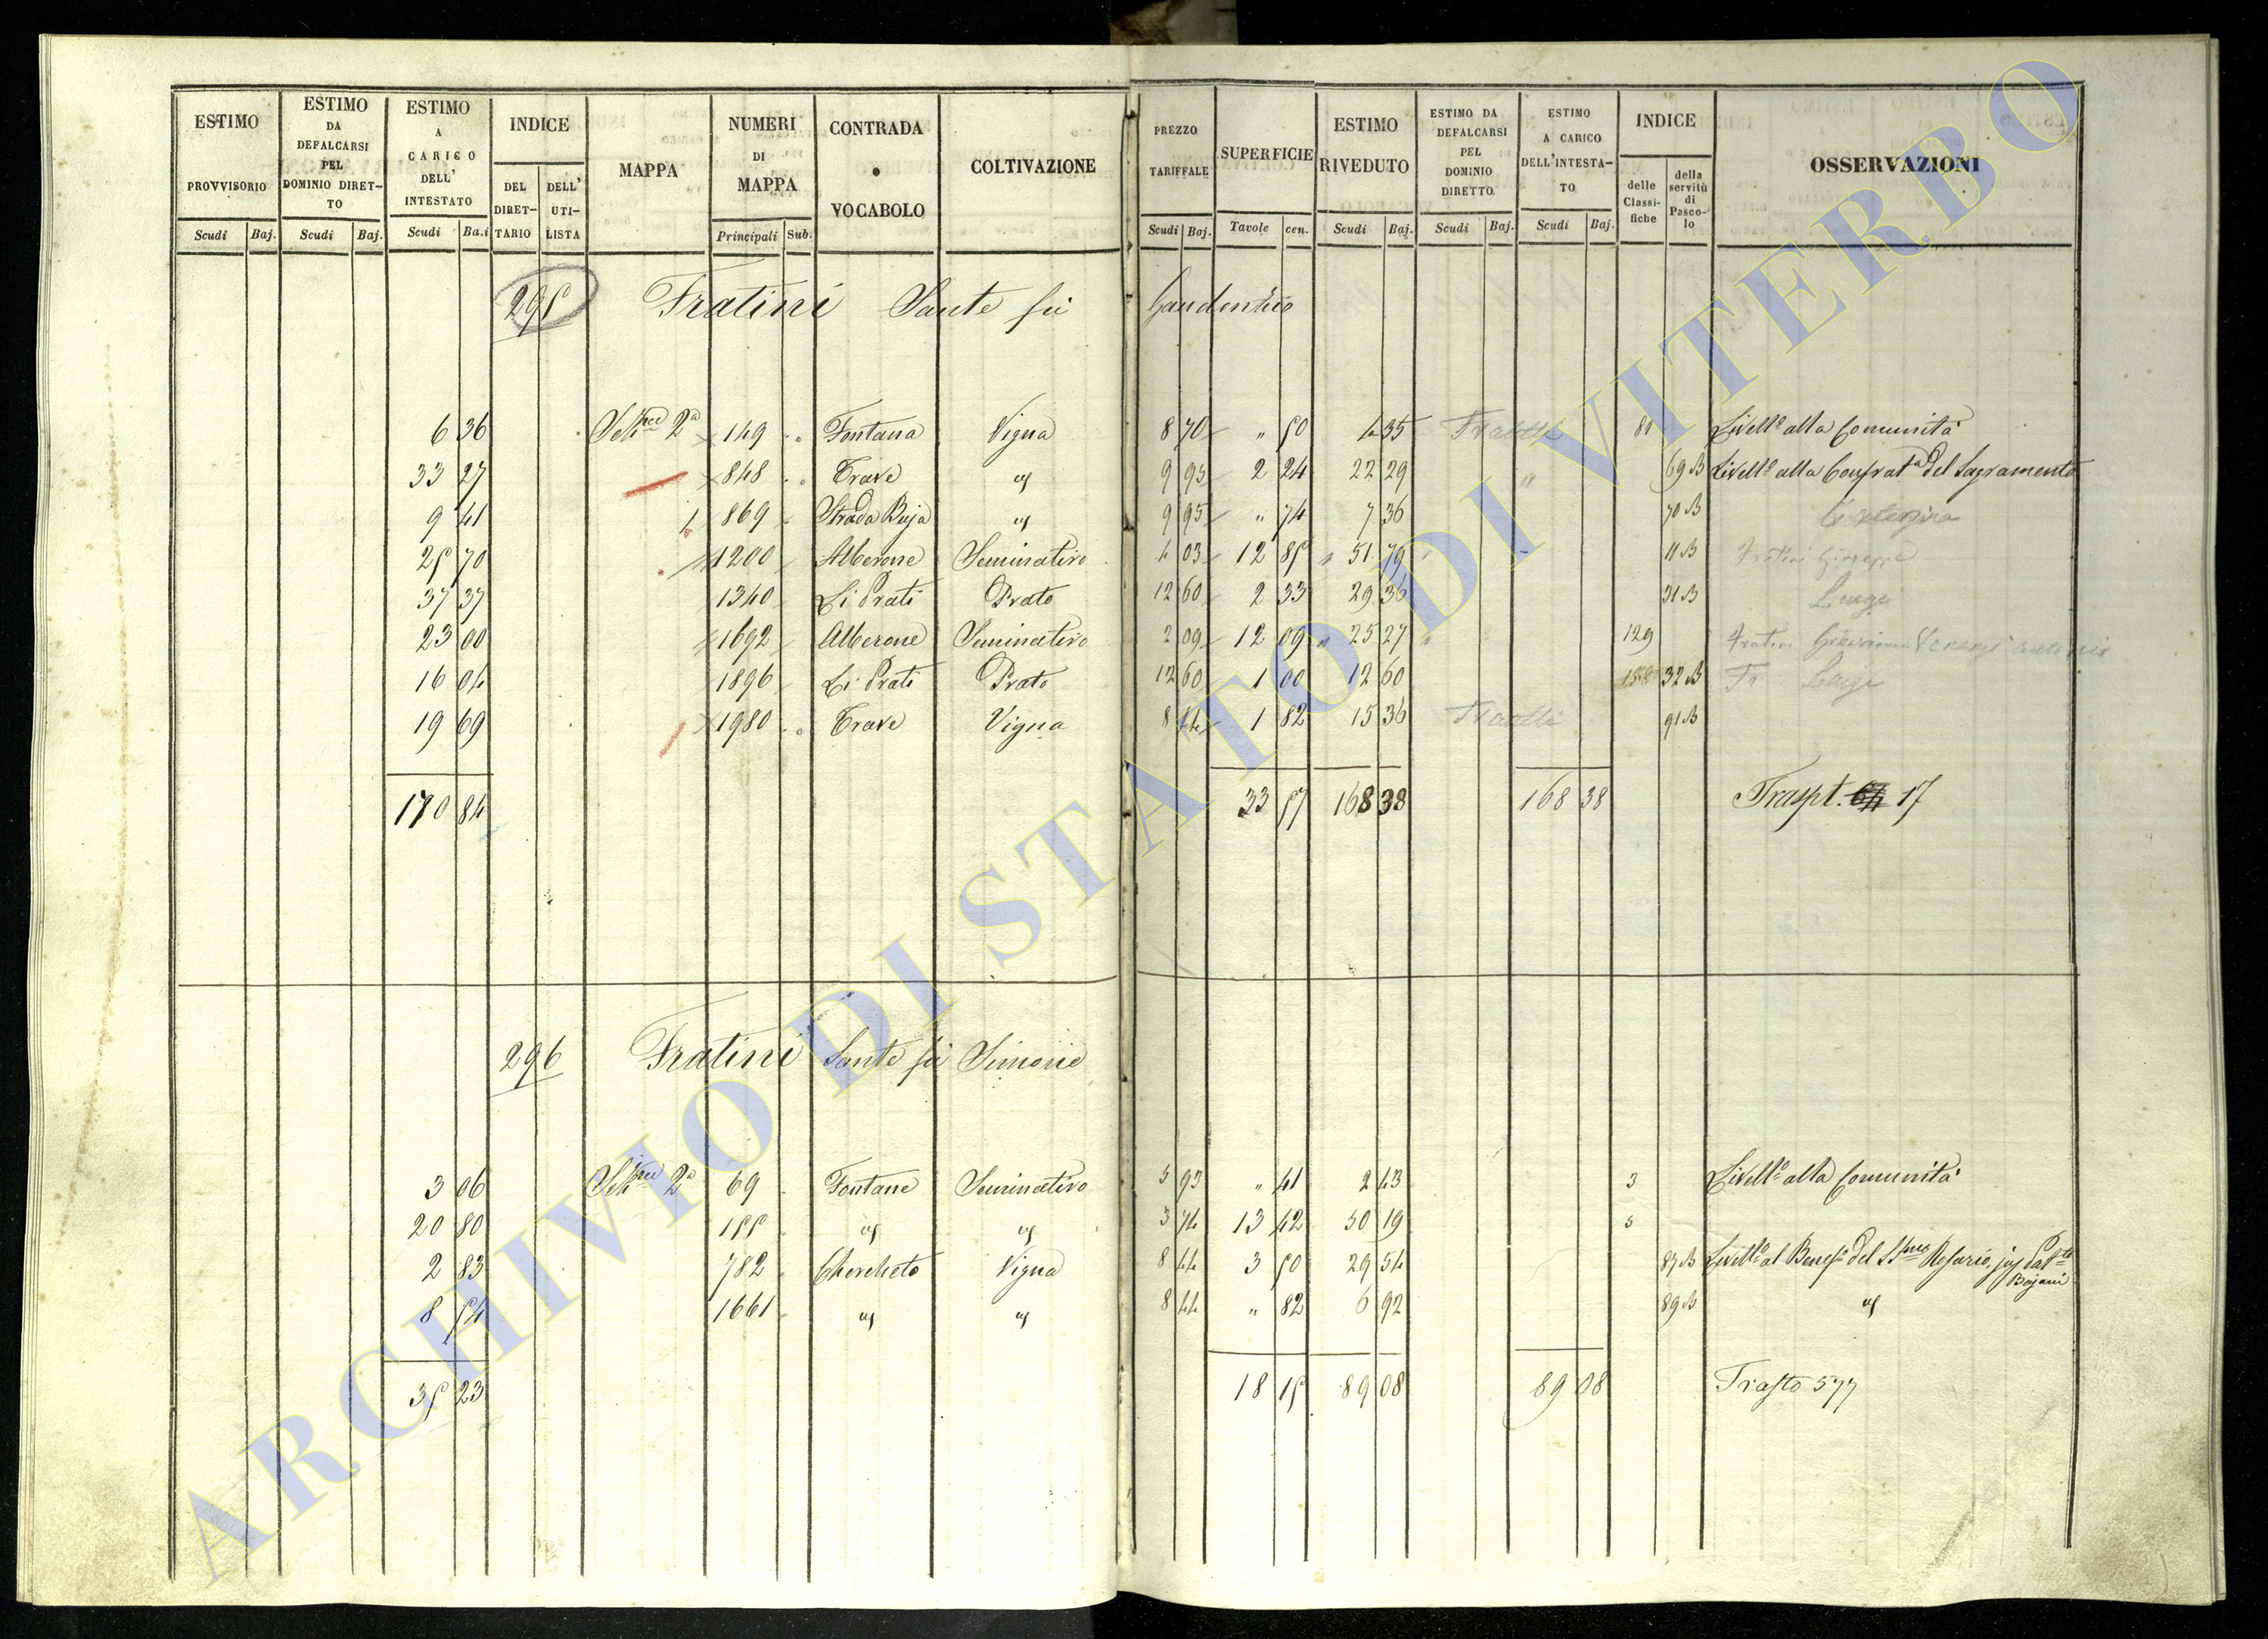 ESTIMO PROVVISORIO
ESTIMO DA DEFALCARSI PEL DOMINIO DIRETTO
ESTIMO A CARICO DELL' INTESTATO
INDICE
DEL DIRETTARIO
DELL' UTILISTA
MAPPA
NUMERI DI MAPPA
CONTRADA o VOCABOLO
COLTIVAZIONE
PREZZO TARIFFALE
SUPERFICIE
ESTIMO RIVEDUTO
ESTIMO DA DEFALCARSI PEL DOMINIO DIRETTO
ESTIMO A CARICO DELL'INTESTATO
INDICE
delle Classifiche
della servitù di Pascolo
OSSERVAZIONI
Scudi Baj. Scudi Baj. Scudi Ba.i Principali Sub. Scudi Baj. Tavole cen. Scudi Baj. Scudi Baj. Scudi Baj.
295 Fratini Sante fù Gaudenzio
6 36 Sett.ne 2a 149 Fontana Vigna 8 70 " 50 4 35 Fratelli 81 Livell.o alla Comunità
33 27 848 Trave es 9 95 2 24 22 29 " 69 B Livell.o alla Confrat.a del Sagramento
9 41 869 Strada Buja es 9 95 " 74 7 36 70 B
25 70 1200 Alberone Seminativo 4 03 12 85 51 79 11 B Fratini Giuseppe
37 37 1340 Li Prati Prato 12 60 2 33 29 36 31 B Luigi
23 00 1692 Alberone Seminativo 2 09 12 09 25 27 129 Fratini Giovanni
16 04 1896 Li Prati Prato 12 60 1 00 12 60 158 32 B Fr Luigi
19 69 1980 Trave Vigna 8 44 1 82 15 36 Fratelli 91 B
170 84 33 57 168 38 168 38 Traspt. 17
296 Fratini Sante fù Simone
3 06 Sett.ne 2a 69 Fontane Seminativo 5 93 " 41 2 43 3 Livell.o alla Comunità
20 80 155 es es 3 74 13 42 50 19 5
2 83 782 Chercheto Vigna 8 44 3 50 29 54 87 B Livell.o al Benef.o del SS.mo Rosario, jus Pat.to Bojani
8 54 1661 es es 8 44 " 82 6 92 89 B es
35 23 18 15 89 08 89 08 Trasto 577
ARCHIVIO DI STATO DI VITERBO